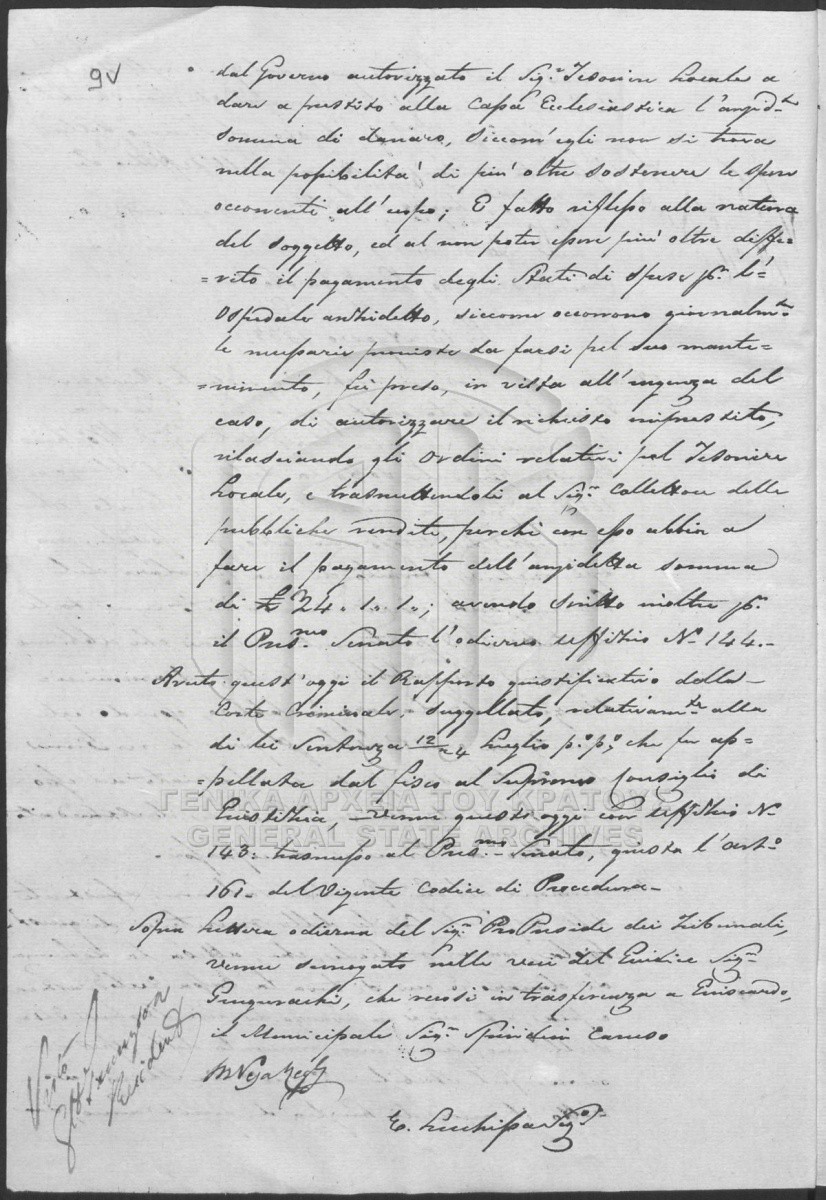 9v
dal Governo autorizzato il Sig.r Tesorier Locale a
dare a prestito alla Cassa Ecclesiastica l'angid.ta
somma di danaro, siccom'egli non si trova
nella possibilita' di piu' oltre sostenere le spese
occorrenti all'uopo; E fatto riflesso alla natura
del soggetto, ed al non poter essere piu' oltre diffe=
=rito il pagamento degli Stati di spese p.r l'
Ospedale anzidetto, siccome occorrono giornalm.te
le necessarie proviste da farsi pel suo mante=
=nimento, fù preso, in vista all'urgenza del
caso, di autorizzare il richiesto imprestito,
rilasciando gli ordini relativi pel Tesoriere
Locale, e trasmettendoli al Sig.r Collettore delle
pubbliche rendite, perchè con esso abbia a
fare il pagamento dell'angidetta somma
di £ 24. 1. 1.; avendo scritto inoltre p.r
il Pres.mo Senato l'odierno uffitio N.o 144.-
Avuto quest'oggi il Rapporto giustificativo della
Corte Criminale, suggellato, relativam.te alla
di lei Sentenza 12/24 Luglio p.o p.o, che fu ap=
=pellata dal fisco al Supremo Consiglio di
Giustizia, venne quest'oggi con uffitio N.o
143: trasmesso al Pres.mo Senato, giusta l'art.o
161. del Vigente Codice di Procedura-
Sopra Lettera odierna del Sig.r ProPreside dei Tribunali,
venne surrogato nelle veci del Giudice Sig.r
che recasi in trasferenza a
il Municipale Sig.r Spiridion Caruso
Visto
Resident
ΓΕΝΙΚΑ ΑΡΧΕΙΑ ΤΟΥ ΚΡΑΤΟΥΣ
GENERAL STATE ARCHIVES